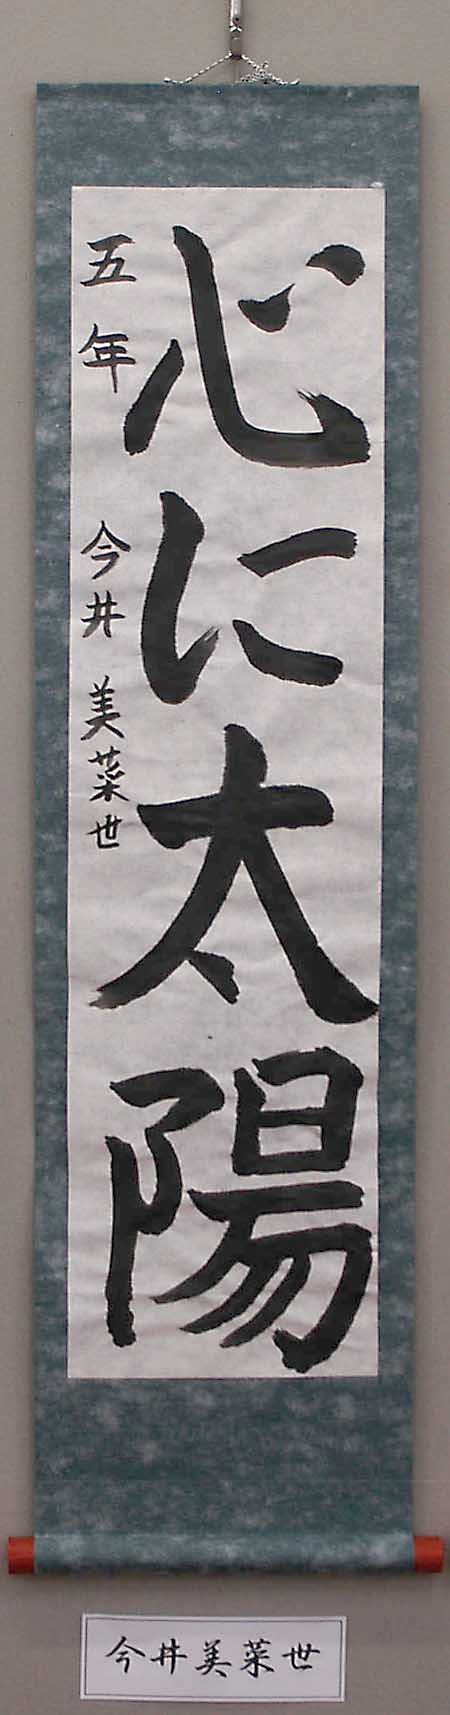 心に太陽
五年 今井 美菜世
今井美菜世